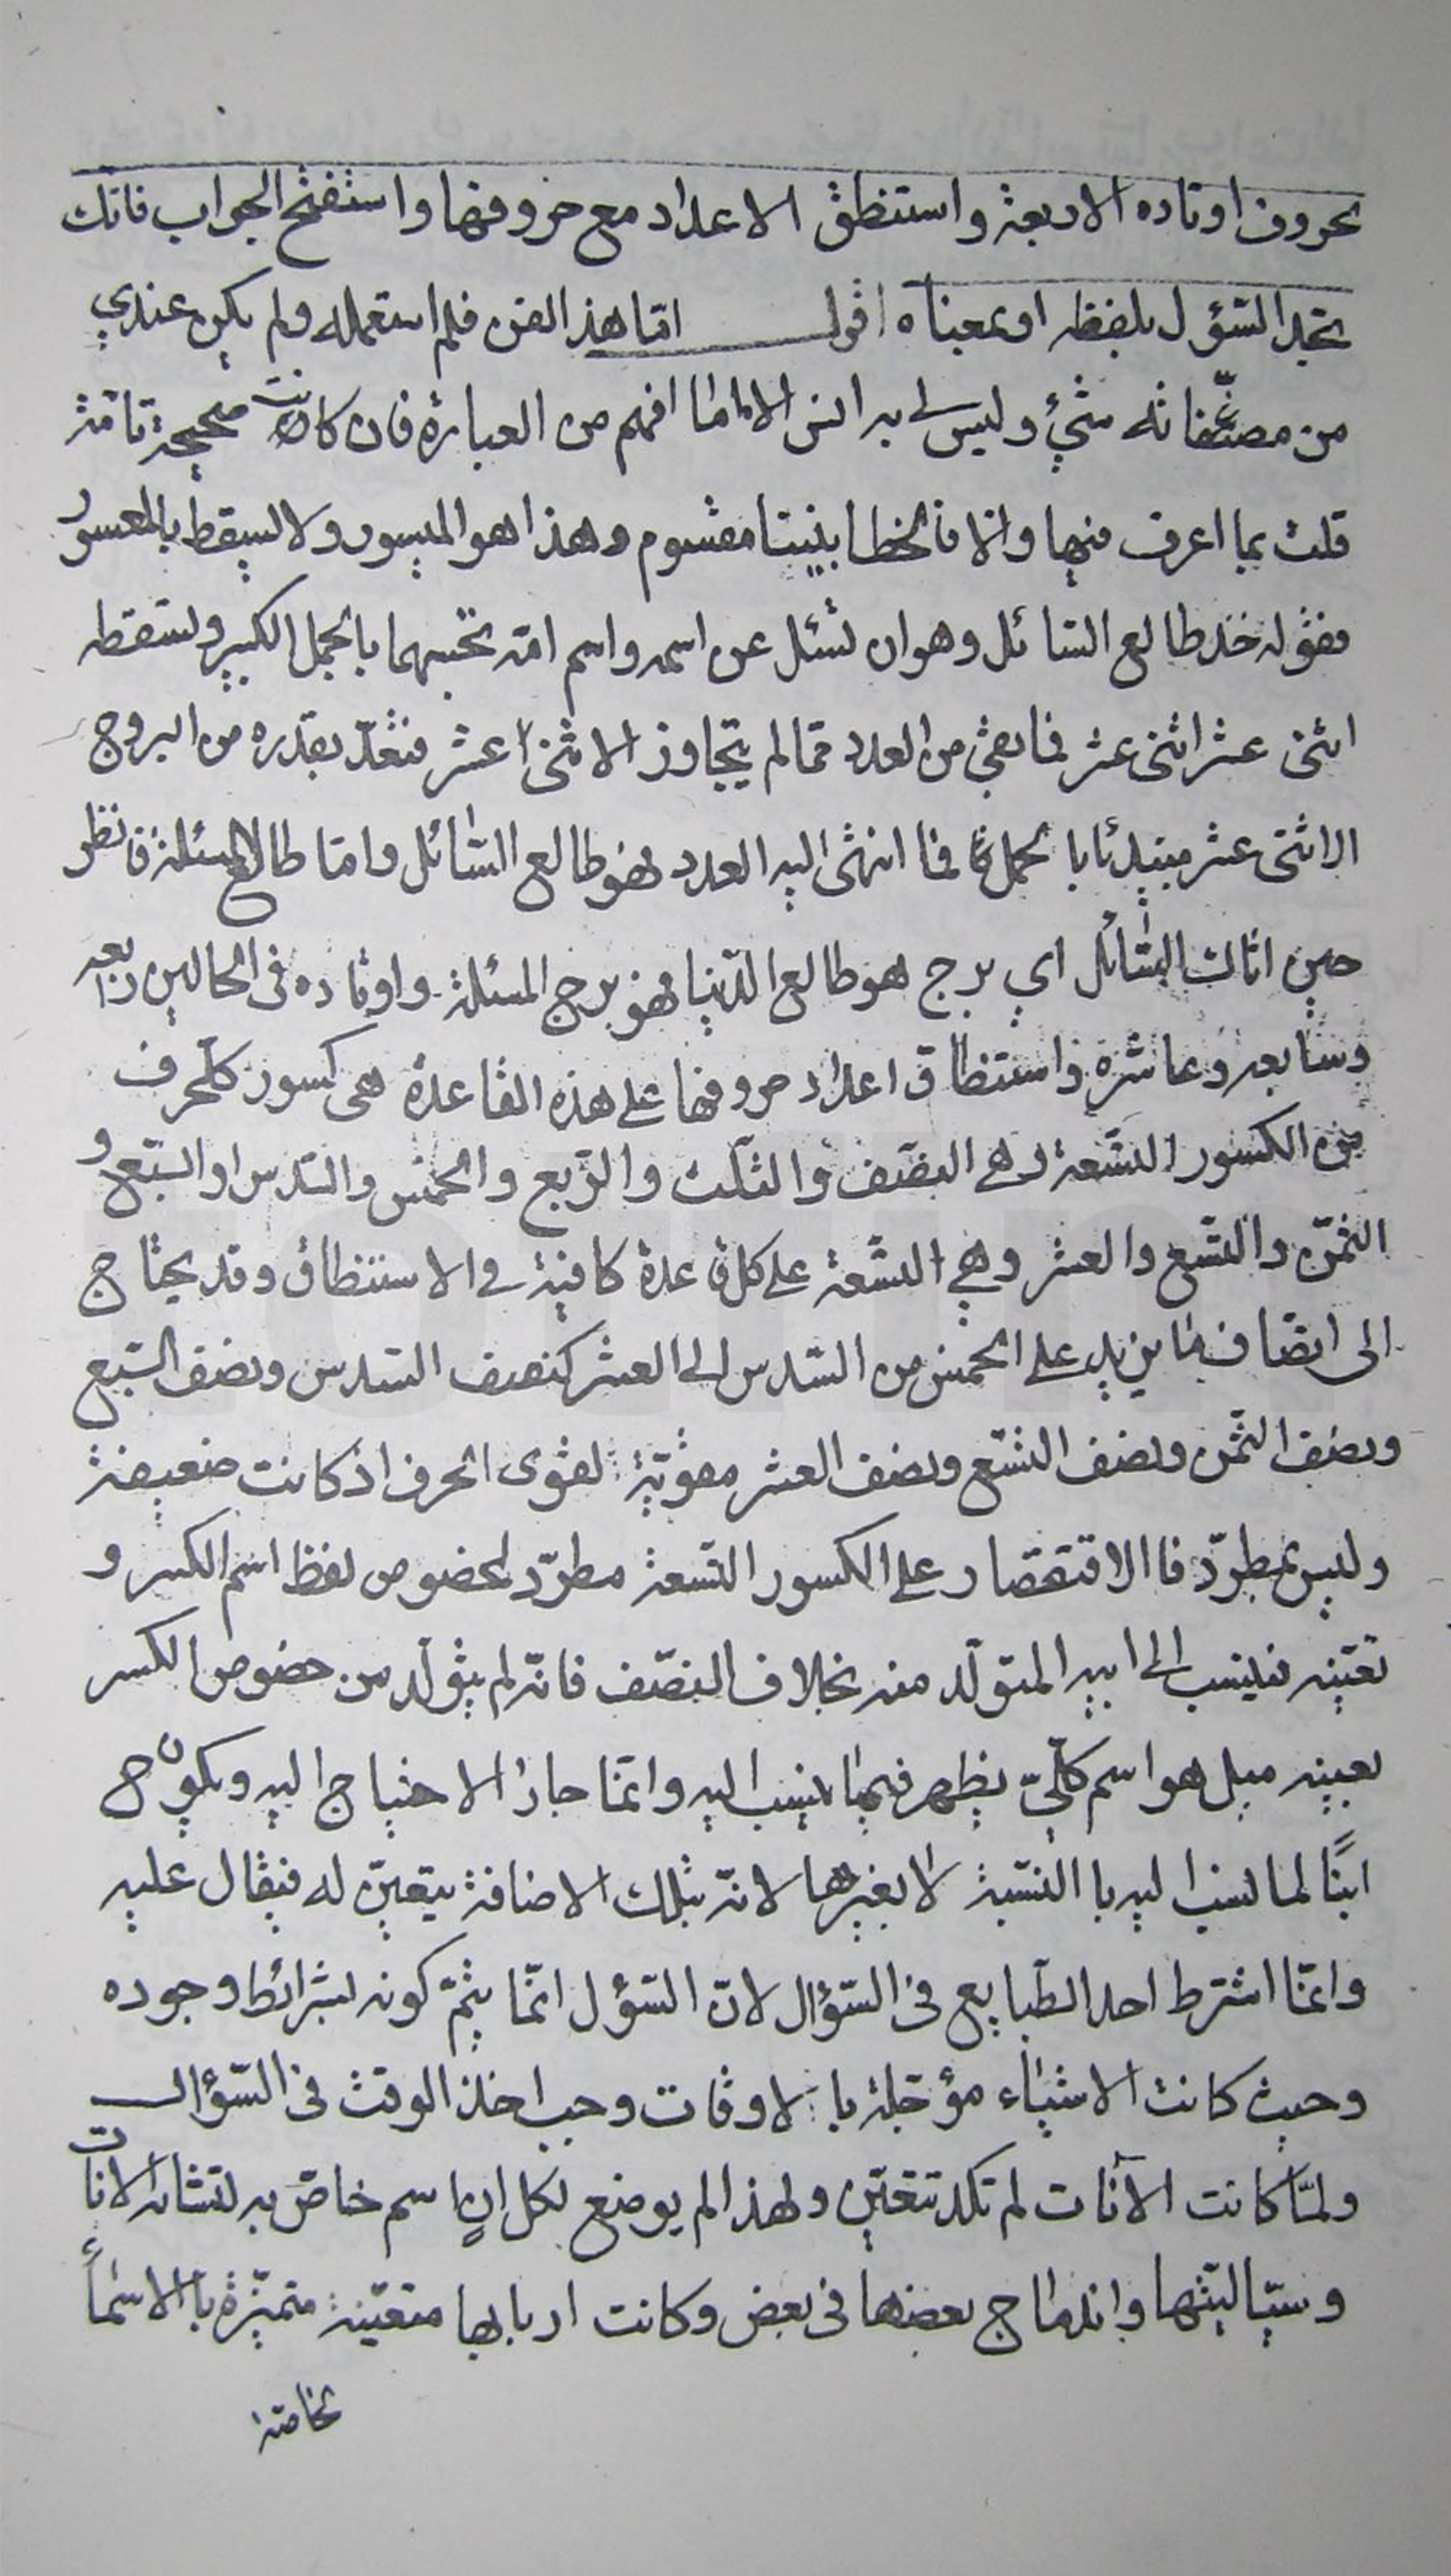 بحروف اوتاده الاربعة واستنطق الاعداد مع حروفها واستفتح الجواب فانك
تجد السّؤل بلفظه او بمعناه اقول امّا هذا الفن فلم استعمله ولم يكن عندي
من مصنّفاته شيء وليس لي به انس الا ما افهم من العبارة فان كانت صحيحة تامّة
قلت بما اعرف منها والا فالخطا بيننا مقسوم وهذا هو الميسور ولا يسقط بالمعسور
فقوله خذ طالع السّائل وهو ان تسئل عن اسمه واسم امّه تحسبهما بالجمل الكبير وتسقطه
اثنى عشر اثنى عشر فما بقى من العدد ممّا لم يتجاوز الاثنى عشر فتعدّ بقدره من البروج
الاثنى عشر مبتدئا بالحمل فما انتهى اليه العدد فهو طالع السّائل وامّا طالع المسئلة فانظر
حين اتاك السّائل اي برج هو طالع الدّنيا فهو برج المسئلة واوتاده فى الحالين رابعه
وسابعه وعاشره واستنطاق اعداد حروفها على هذه القاعدة هى كسور كلّ حرف
من الكسور التّسعة وهى النصّف والثلث والرّبع والخمس والسّدس والسّبع و
الثمّن والتّسع والعشر وهي التّسعة على كل قاعدة كافية فى الاستنطاق وقد يحتاج
الى انصاف ما يزيد على الخمس من السّدس الى العشر كنصف السّدس ونصف السّبع
ونصف الثمّن ونصف التّسع ونصف العشر مقوّية لقوى الحرف اذ كانت ضعيفة
وليس بمطرّد فا الاقتصار على الكسور التّسعة مطرّد لخصوص لفظ اسم الكسر و
تعيّنه فينسب الى ابيه المتولّد منه بخلاف النصّف فانّه لم يتولّد من خصوص الكسر
بعينه بل هو اسم كلّيّ يظهر فيما ينسب اليه وانمّا جاز الاحتياج اليه ويكون ح
ابنًا لما نسب اليه با النّسبة لا بغيرها لانّه بتلك الاضافة يتعيّن له فيقال عليه
وانمّا اشترط احد الطّبايع فى السّؤال لانّ السّؤل انمّا يتمّ كونه بشرائط وجوده
وحيث كانت الاشياء مؤجّلة با لاوقات وجب اخذ الوقت فى السّؤال
ولمّا كانت الآنات لم تكد تتعيّن ولهذا لم يوضع لكل انٍ اسم خاصّ به لتشابه الانات
وسيّاليّتها واندماج بعضها فى بعض وكانت اربابها متعيّنة متميّزة با الاسماءِ
الخاصة